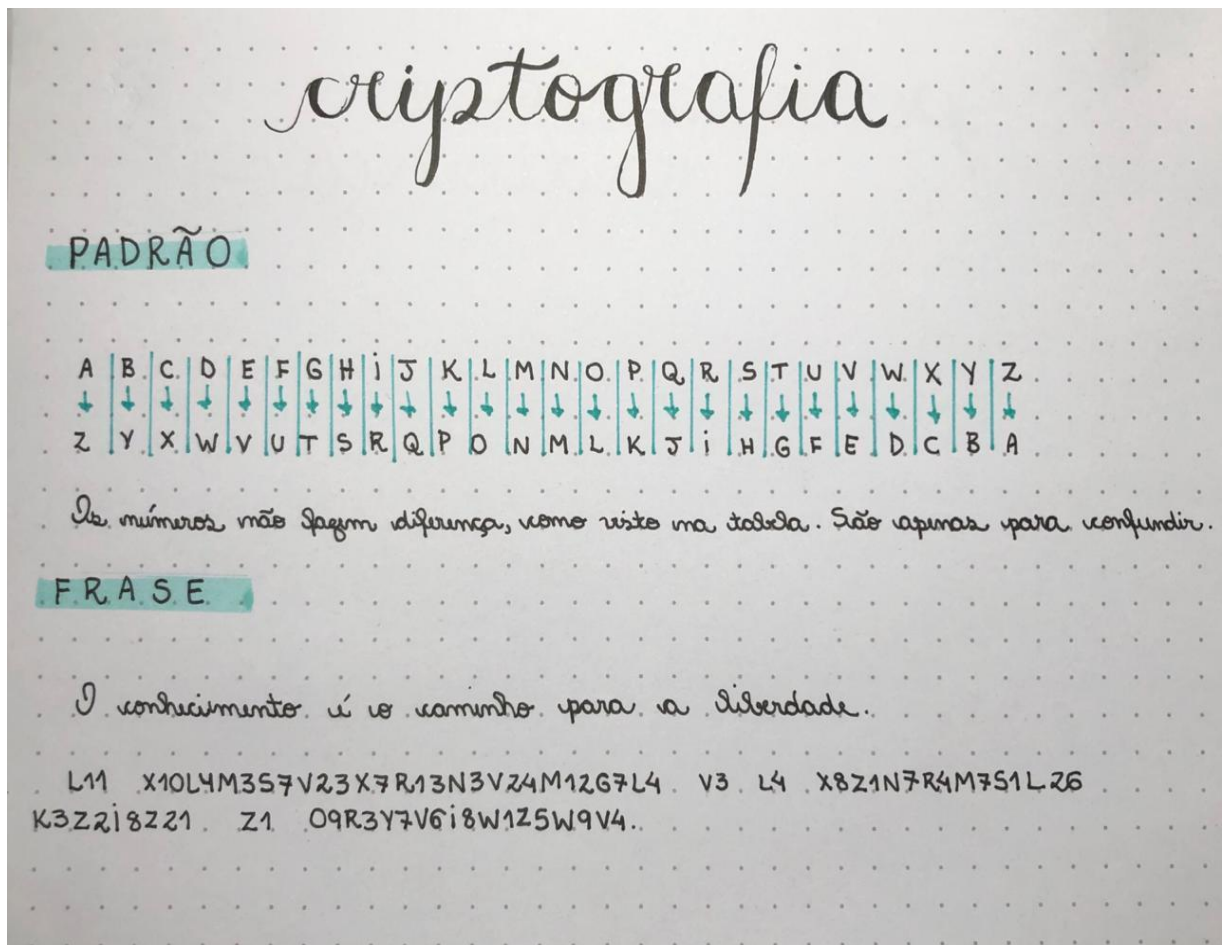 criptografia
PADRÃO
A B C D E F G H i J K L M N O P Q R S T U V W X Y Z
Z Y X W V U T S R Q P O N M L K J i H G F E D C B A
Os números não fazem diferença, como visto na tabela. São apenas para confundir.
FRASE
O conhecimento é o caminho para a liberdade.
L11 X10L4M3S7V23X7R13N3V24M12G7L4 V3 L4 X8Z1N7R4M7S1L26
K3Z2i8Z21 Z1 O9R3Y7V6i8W1Z5W9V4.